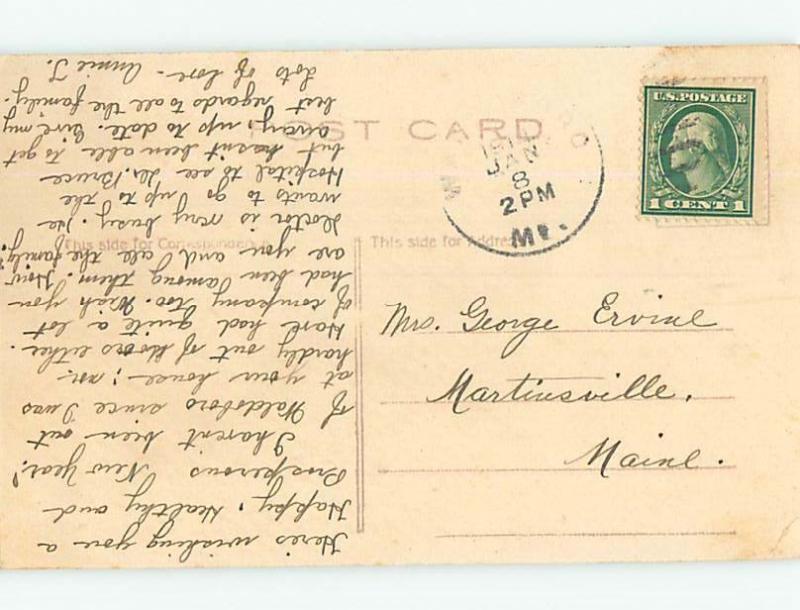 POST CARD
This side for Correspondence
This side for Address
U.S. POSTAGE
1 CENT 1
JAN
8
2 PM
ME.
Mrs. George Ervine
Martinsville,
Maine.
Here's wishing you a
Happy, Healthy and
Prosperous New Year!
I havent been out
of Waldoboro since I was
at your house; nor
hardly out of doors either.
Have had quite a lot
of company too. Wish you
had been among them. How
are you and all the family?
Doctor is very busy. He
wants to go up to the
Hospital to see Dr. Bruce
but hasn't been able to get
away, up to date. Give my
best regards to all the family.
Lots of love - Annie T.